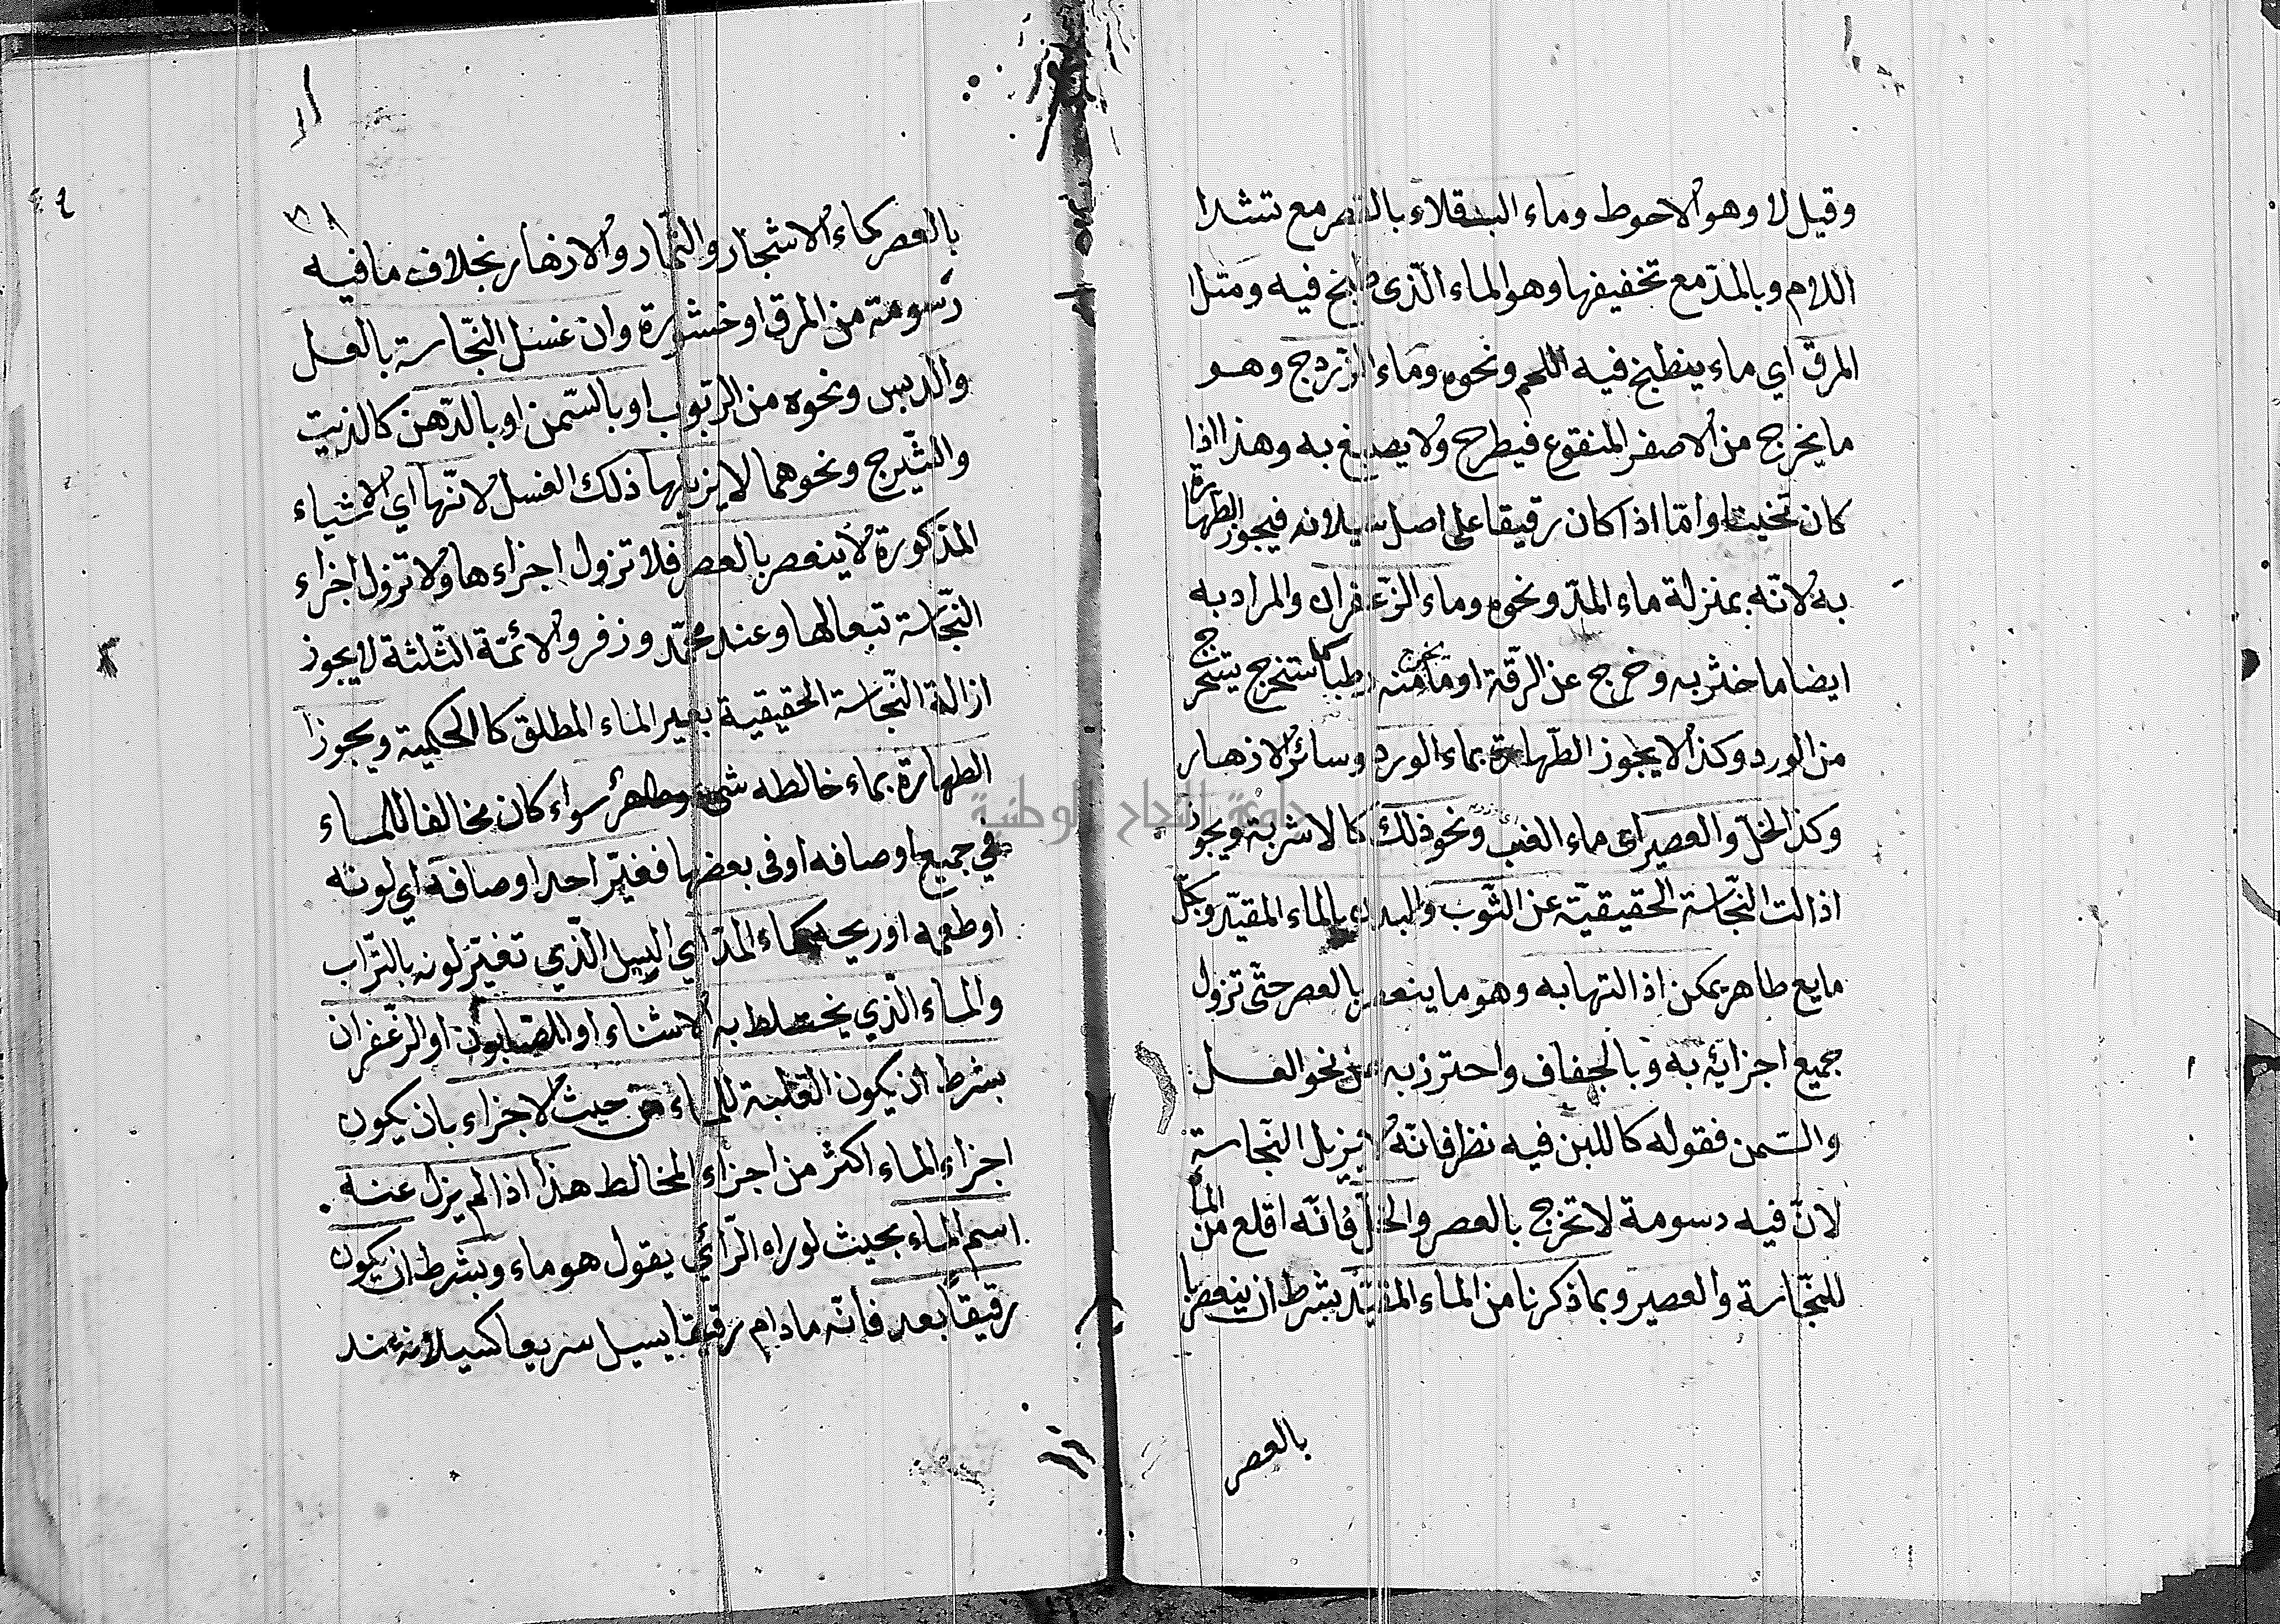 وقيل لا وهو الاحوط وماء الباقلاء بالقصر مع تشدا
اللام وبالمد مع تخفيفها وهو الماء الذى طبخ فيه ومثل
المرق اي ماء ينطبخ فيه اللحم ونحوه وماء الزردج وهو
ما يخرج من الاصفر المنقوع فيطرح ولا يصبغ به وهذا اذا
كان ثخينا واما اذا كان رقيقا على اصل سيلانه فيجوز الطهارة
به لانه بمنزلة ماء المد ونحوه وماء الزعفران والمراد به
ايضا ما خثر به وخرج عن الرقة او ما يخرج منه رطبا كما يستخرج
من الورد وكذا لا يجوز الطهارة بماء الورد وسائر الازهار
وكذا الخل والعصير اى ماء العنب ونحو ذلك كالاشربة ويجوز
اذالت النجاسة الحقيقية عن الثوب والبدن بالماء المقيد وبكل
مايع طاهر يمكن اذالتها به وهو ما ينعصر بالعصر حتى تزول
جميع اجزائه به وبالجفاف واحترز به عن نحو العسل
والسمن فقوله كاللبن فيه نظر فانه لا يزيل النجاسة
لان فيه دسومة لا تخرج بالعصر والخل فانه اقلع من الماء
للنجاسة والعصير وبما ذكرنا من الماء المقيد بشرط ان ينعصر
بالعصر
بالعصر كماء الاشجار والثمار والازهار بخلاف ما فيه
دسومة من المرق او خشورة وان غسل النجاسة بالعسل
والدبس ونحوه من الربوب او بالسمن او بالدهن كالزيت
والشيرج ونحوهما لا يزيلها ذلك الغسل لانها اي الاشياء
المذكورة لا ينعصر بالعصر فلا تزول اجزاءها ولا تزول اجزاء
النجاسة تبعا لها وعند محمد وزفر والائمة الثلثة لا يجوز
ازالة النجاسة الحقيقية بغير الماء المطلق كالحكمية ويجوز
الطهارة بماء خالطه شيء طاهر سواء كان مخالفا للماء
في جميع اوصافه او فى بعضها فغير احد اوصافه اي لونه
او طعمه او ريحه كماء المد اي السيل الذي تغير لونه بالتراب
والماء الذي يختلط به الاشناء او الصابون او الزعفران
بشرط ان يكون الغلبة للماء من حيث الاجزاء بان يكون
اجزاء الماء اكثر من اجزاء المخالط هذا اذا لم يزل عنه
اسم الماء بحيث لو راه الرأئي يقول هو ماء وبشرط ان يكون
رقيقا بعد فانه مادام رقيقا يسيل سريعا كسيلانه عند
جامعة النجاح الوطنية